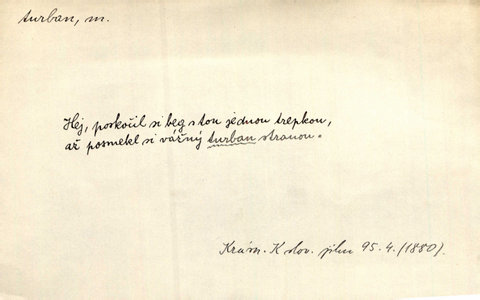 turban, m.
Hej, poskočil si beg s tou jednou trepkou,
až posmekl si vážný turban stranou.
Krásn. K slov. jihu 95.4.(1880).